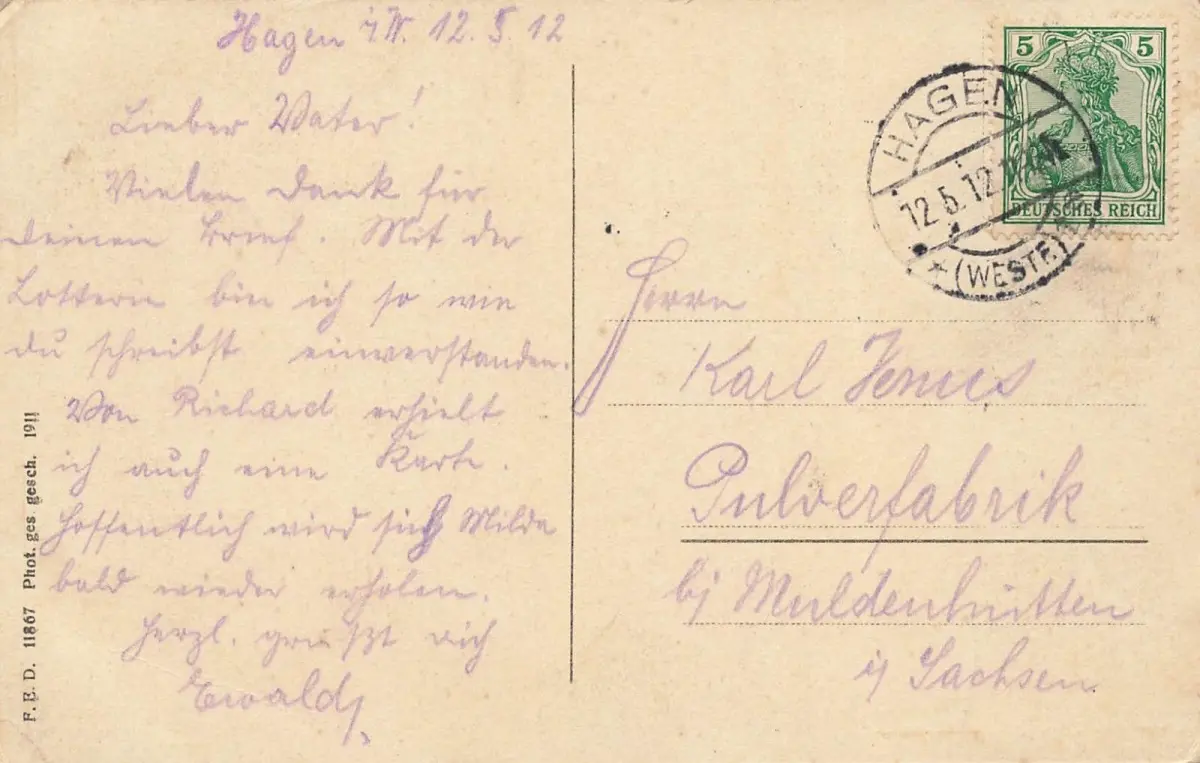 Hagen i/W. 12.5.12
Lieber Vater!
Vielen Dank für
deinen Brief. Mit der
bin ich so wie
du schreibst einverstanden.
Von Richard erhielt
ich auch eine Karte.
Hoffentlich wird sich Milda
bald wieder erholen.
Herzl. grüßt dich
Ewald
F. E. D. 11867 Phot. ges gesch. 1911
5 5
DEUTSCHES REICH
HAGEN
12.5.12
(WESTF.)
Herrn
Karl
Pulverfabrik
b/ Muldenhütten
i/ Sachsen